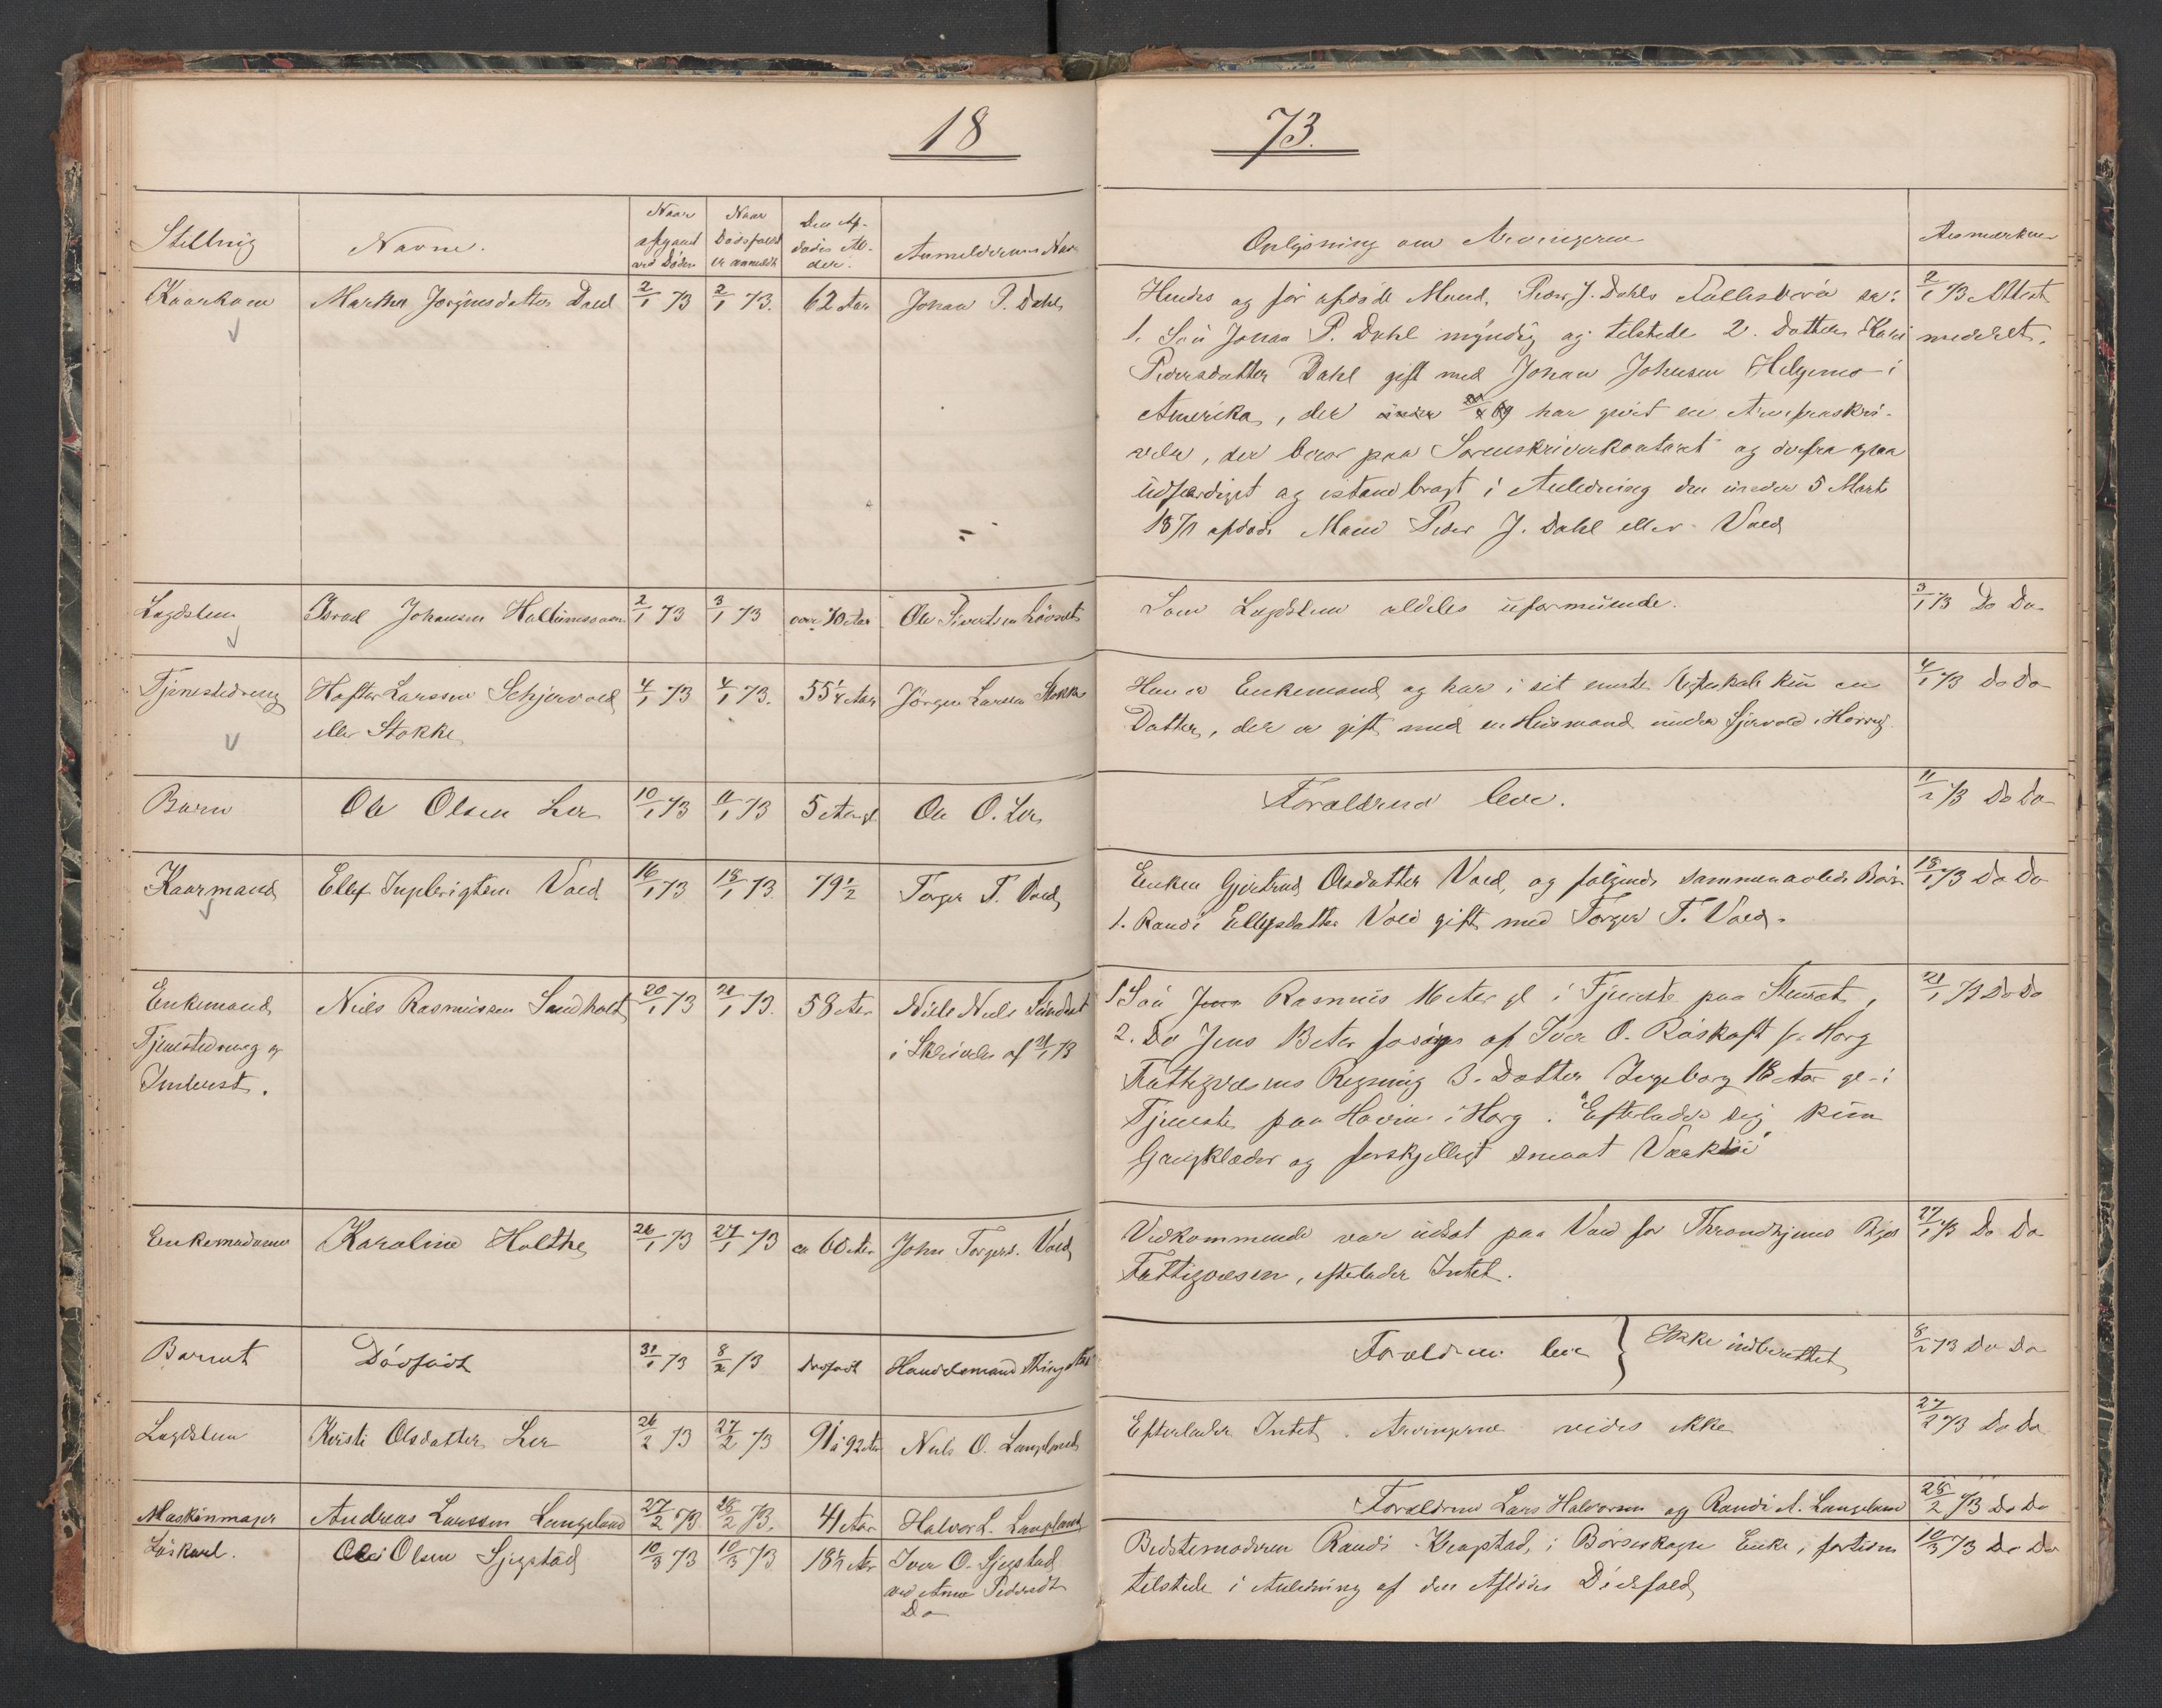 18 73.
Stilling
Navne.
Naar afgaaet ved Døden
Naar Dødsfaldet er anmeldt
Den Af-
dødes Al-
der.
Anmelderens Nav
Oplysning om Arvingerne
Anmærkn
Kaarkone
Marthe Jørginsdatter Dahl
2/1 73
2/1 73.
62 Aar
Johan P. Dahl
Hendes og før afdøde Mand, Peder J. Dahls Fællesbørn er:
1. Søn Johan P. Dahl myndig og tilstede 2. Datter Kari
Pedersdatter Dahl gift med Johan Johnsen Helgemo i
Amerika, der under 69 har givet en Arvefraskri-
velse, der beror paa Sorenskriverkontoret og derfra ogsaa
udfærdiget og istandbragt i Anledning den under 5 Marts
1870 afdøde Mand Peder J. Dahl eller Vold
2/1 73 Attest
meddelt.
Lægdslem
Israel Johansen
2/1 73
3/1 73
over 70 Aar
Ole Sivertsen Løvset
Som Lægdslem aldeles uformuende.
3/1 73 Do Do
Tjenestedreng
Hafter Larssen Schjervold
eller Stokke
4/1 73
4/1 73.
55 1/4 Aar
Jörgen Larsen Stokke
Han er Enkemand og har i sit Ægteskab kun en
Datter, der er gift med en Husmand under Sjervold i Horrig
4/1 73 Do Do
Barn
Ole Olsen Ler
10/1 73
11/1 73
5 Aar gl
Ole O. Ler
Forældrene leve.
11/1 73 Do Do
Kaarmand
Ellef Ingebrigtsen Vold
16/1 73
18/1 73.
79 1/2
Torger T. Vold
Enken Gjertrud Olsdatter Vold, og følgende sammenavlede Børn
1. Randi Ellefsdatter Vold gift med Torger T. Vold.
18/1 73 Do Do
Enkemand
Tjenestedreng og
Inderst.
Niels Rasmussen Sundholt
20/1 73
21/1 73.
58 Aar
Niels Niels
i Skrivelse af 21/1 73
1 Søn Jens Rasmus 16 Aar gl i Tjeneste paa
2. Do Jens 13 Aar forsörges af Iver O. Röskaft for Horg
Fattigvæsens Regning 3. Datter Ingeborg 18 Aar gl i
Tjeneste paa Hovin i Horg. Efterlader sig kun
Gangklæder og forskjelligt smaat Værktöi
21/1 73 Do Do
Enkemadame
Karoline Holthe
26/1 73
27/1 73
ca 60 Aar
John Torgers. Vold
Vedkommende var udsat paa Vold for Throndhjems Byes
Fattigvæsen, efterlader Intet.
27/1 73 Do Do
Barnet
Dødfødt
31/1 73
8/2 73
Dødfødt
Handelsmand
Forældrene leve } Ikke indberettet
8/2 73 Do Do
Lægdslem
Kirsti Olsdatter Ler
26/2 73
27/2 73
91 à 92 Aar
Niels O. Langeland
Efterlader Intet. Arvingerne vides ikke
27/2 73 Do Do
Maskinmager
Andreas Larssen Langeland
27/2 73.
28/2 73.
41 Aar
Halvor L. Langland
Forældrene Lars Halvorsen og Randi A. Langeland
28/2 73 Do Do
Løskarl.
Ole Olsen Sjegstad
10/3 73
10/3 73
18 1/2 Aar
Iver O. Sjegstad
ved Ane Pedersdt
Do
Bedstemoderen Randi Krogstad, i Børseskogn Enke,
tilstede i Anledning af den Afdödes Dödsfald
10/3 73 Do Do